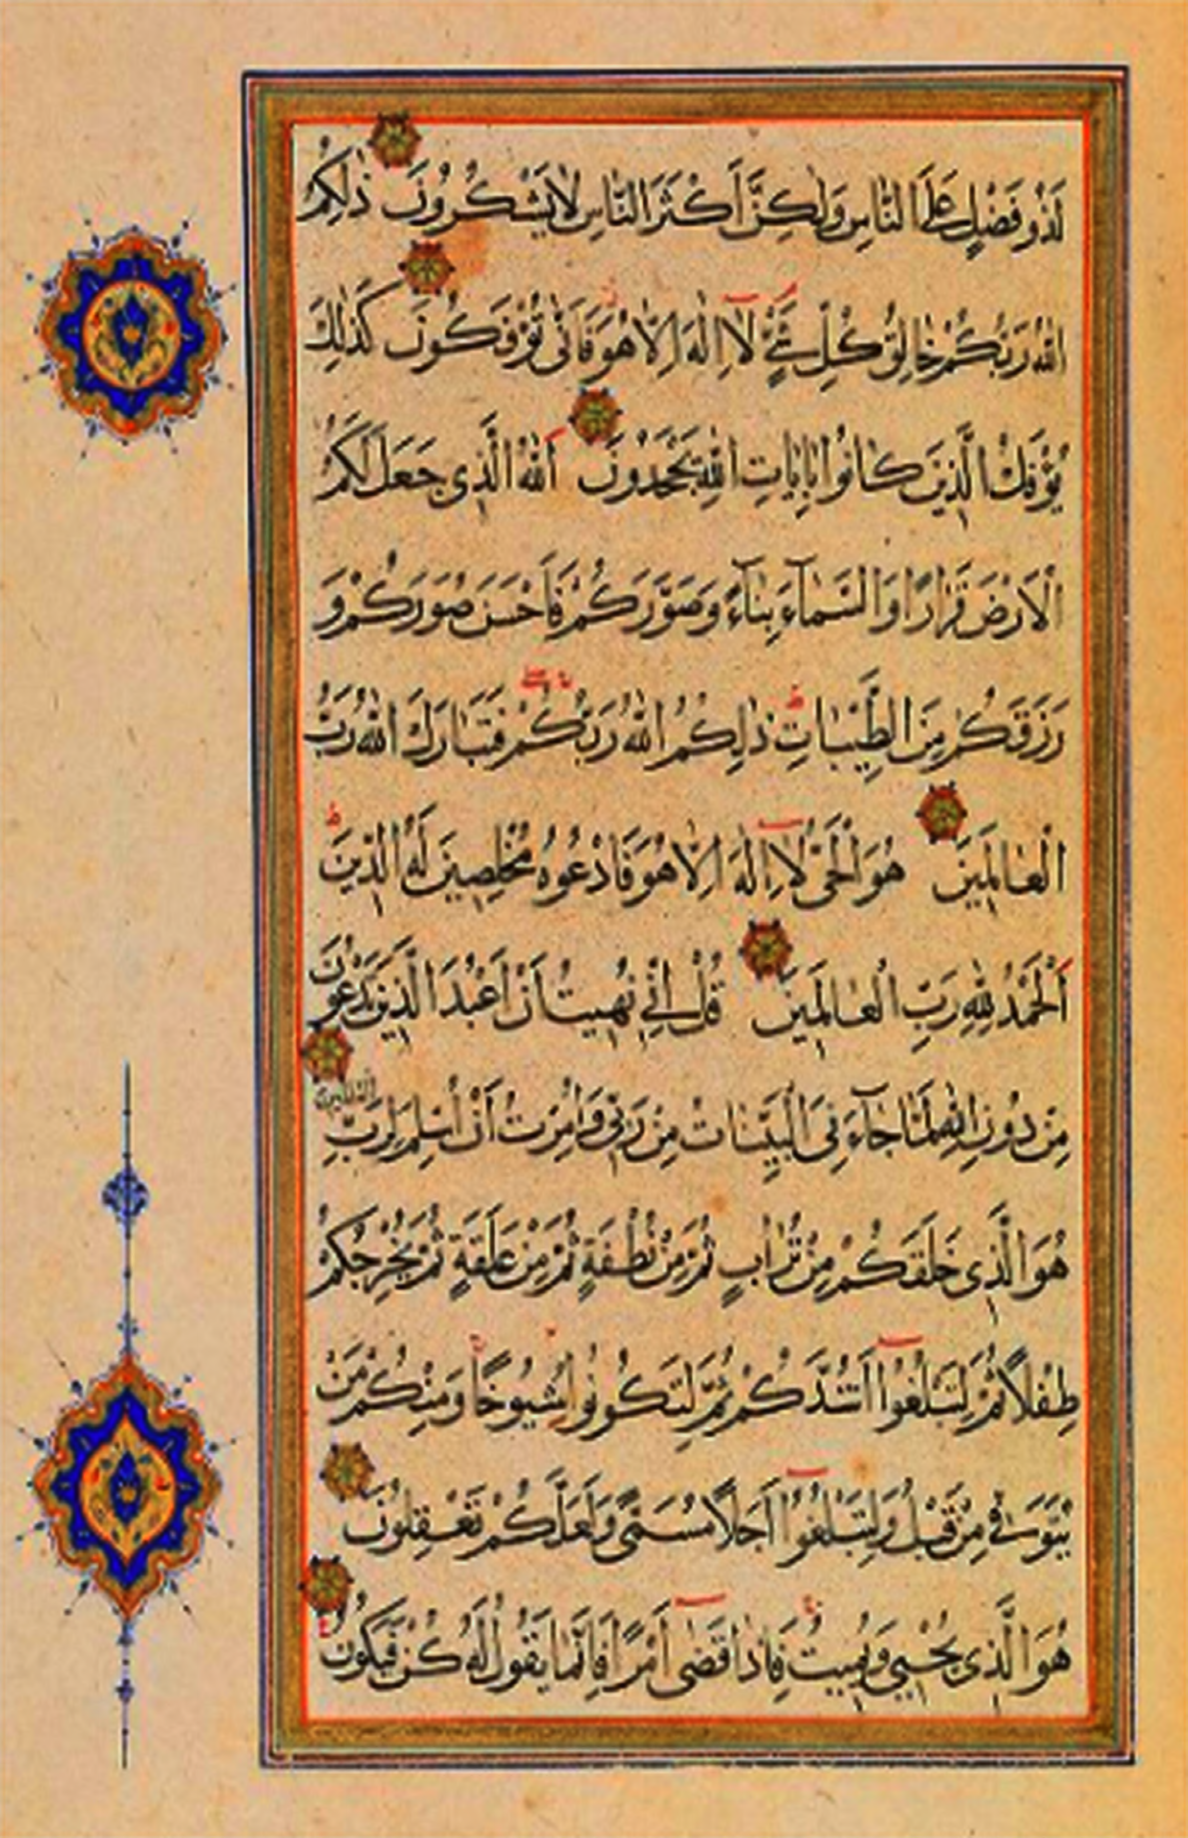 لَذُو فَضْلٍ عَلَى النَّاسِ وَلٰكِنَّ أَكْثَرَ النَّاسِ لَا يَشْكُرُونَ ذٰلِكُمُ
اللّٰهُ رَبُّكُمْ خَالِقُ كُلِّ شَيْءٍ لَآ اِلٰهَ اِلَّا هُوَ فَاَنّٰى تُؤْفَكُونَ كَذٰلِكَ
يُؤْفَكُ الَّذِينَ كَانُوا بِاٰيَاتِ اللّٰهِ يَجْحَدُونَ اَللّٰهُ الَّذِي جَعَلَ لَكُمُ
الْاَرْضَ قَرَارًا وَالسَّمَآءَ بِنَآءً وَصَوَّرَكُمْ فَاَحْسَنَ صُوَرَكُمْ وَ
رَزَقَكُمْ مِنَ الطَّيِّبَاتِ ذٰلِكُمُ اللّٰهُ رَبُّكُمْ فَتَبَارَكَ اللّٰهُ رَبُّ
الْعَالَمِينَ هُوَ الْحَيُّ لَآ اِلٰهَ اِلَّا هُوَ فَادْعُوهُ مُخْلِصِينَ لَهُ الدِّينَ
اَلْحَمْدُ لِلّٰهِ رَبِّ الْعَالَمِينَ قُلْ اِنِّي نُهِيتُ اَنْ اَعْبُدَ الَّذِينَ تَدْعُونَ
مِنْ دُونِ اللّٰهِ لَمَّا جَآءَنِيَ الْبَيِّنَاتُ مِنْ رَبِّي وَاُمِرْتُ اَنْ اُسْلِمَ لِرَبِّ العالمين
هُوَ الَّذِي خَلَقَكُمْ مِنْ تُرَابٍ ثُمَّ مِنْ نُطْفَةٍ ثُمَّ مِنْ عَلَقَةٍ ثُمَّ يُخْرِجُكُمْ
طِفْلًا ثُمَّ لِتَبْلُغُوٓا اَشُدَّكُمْ ثُمَّ لِتَكُونُوا شُيُوخًا وَمِنْكُمْ مَنْ
يُتَوَفّٰى مِنْ قَبْلُ وَلِتَبْلُغُوٓا اَجَلًا مُسَمًّى وَلَعَلَّكُمْ تَعْقِلُونَ
هُوَ الَّذِي يُحْيِي وَيُمِيتُ فَاِذَا قَضٰٓى اَمْرًا فَاِنَّمَا يَقُولُ لَهُ كُنْ فَيَكُونُ